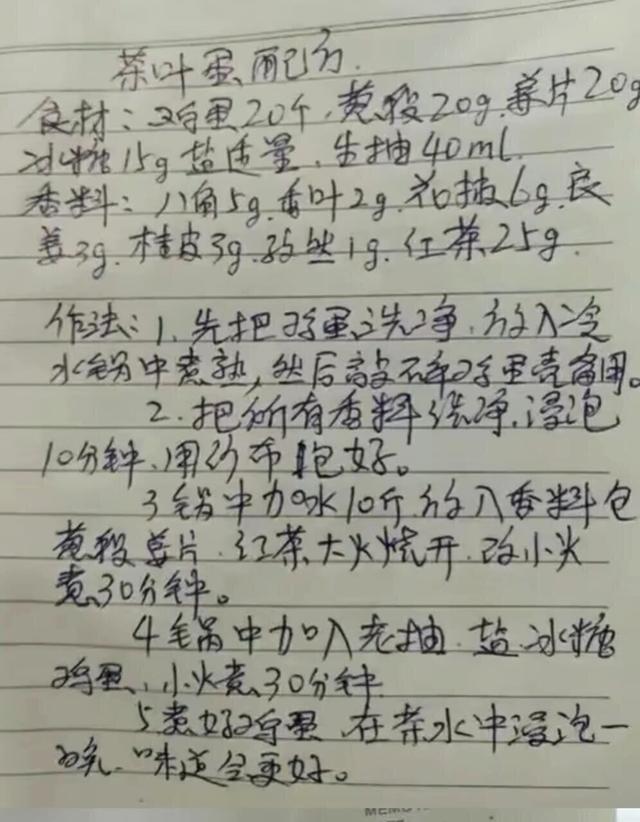 茶叶蛋配方.
食材:鸡蛋20个.葱段20g.姜片20g
冰糖15g 盐适量.生抽40ml.
香料:八角5g.香叶2g.花椒6g.良
姜3g.桂皮3g.孜然1g.红茶25g.
作法:1.先把鸡蛋洗净.放入冷
水锅中煮熟,然后敲碎鸡蛋壳备用。
2.把所有香料洗净.浸泡
10分钟、用纱布包好。
3锅中加水10斤.放入香料包
葱段姜片.红茶大火烧开.改小火
煮30分钟。
4锅中加入老抽.盐.冰糖
鸡蛋、小火煮30分钟
5煮好鸡蛋 在茶水中浸泡一
晚.味道会更好。